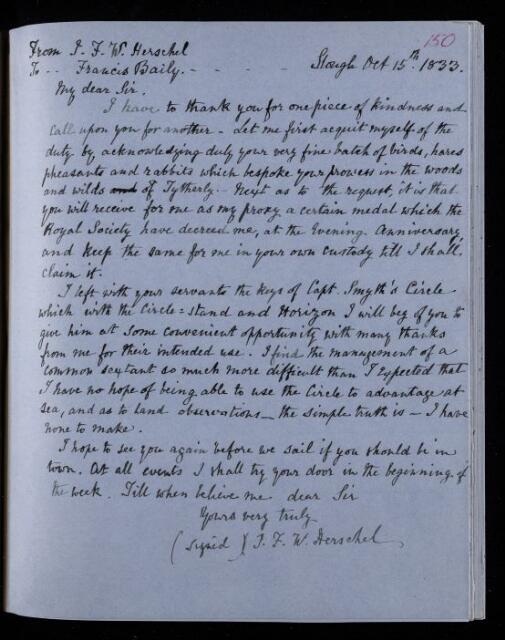 150
From J. F. W. Herschel
To -- Francis Baily. - - - - Slough Oct 15th. 1833.
My dear Sir.
I have to thank you for one piece of kindness and
call upon you for another - Let me first acquit myself of the
duty by acknowledging duly your very fine batch of birds, hares
pheasants and rabbits which bespoke your prowess in the woods
and wilds and of Tytherly - Next as to the request, it is that
you will receive for me as my proxy a certain medal which the
Royal Society have decreed me, at the Evening Anniversary,
and keep the same for me in your own custody till I shall
claim it.
I left with your servants the keys of Capt. Smyth's Circle
which with the Circle=stand and Horizon I will beg of you to
give him at some convenient opportunity with many thanks
from me for their intended use. I find the management of a
common sextant so much more difficult than I expected that
I have no hope of being able to use the Circle to advantage at
sea, and as to land observations - the simple truth is - I have
none to make.
I hope to see you again before we sail if you should be in
town. At all events I shall try your door in the beginning of
the week. Till when believe me dear Sir
Yours very truly
(signed) J. F. W. Herschel